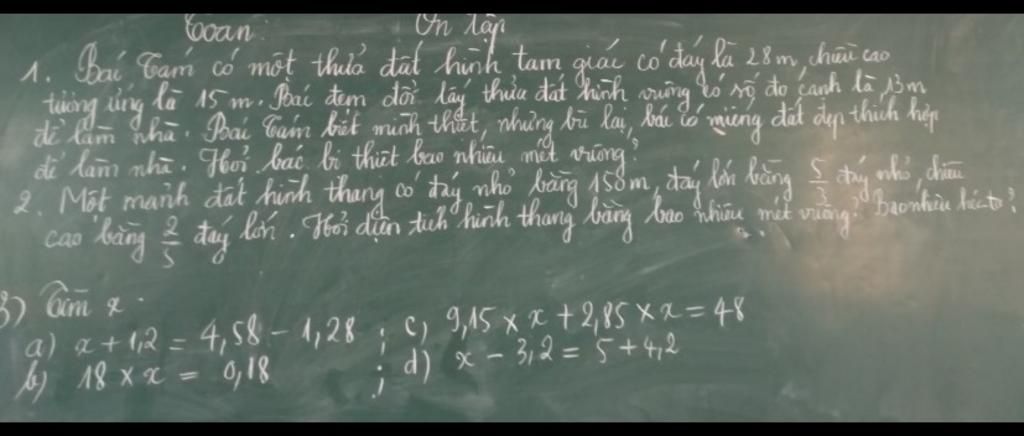 Toán: Ôn tập
1. Bác Tám có một thửa đất hình tam giác có đáy là 28m, chiều cao
tương ứng là 15m. Bác đem đổi lấy thửa đất hình vuông có số đo cạnh là 13m
để làm nhà. Bác Tám biết mình thiệt, nhưng bù lại, bác có miếng đất đẹp thích hợp
để làm nhà. Hỏi bác bị thiệt bao nhiêu mét vuông?
2. Một mảnh đất hình thang có đáy nhỏ bằng 150m, đáy lớn bằng 5/3 đáy nhỏ, chiều
cao bằng 2/5 đáy lớn. Hỏi diện tích hình thang bằng bao nhiêu mét vuông. Bao nhiêu héc-ta?
3) Tìm x.
a) x + 1,2 = 4,58 - 1,28 ; c) 9,15 × x + 2,85 × x = 48
b) 18 × x = 0,18 ; d) x - 3,2 = 5 + 4,2